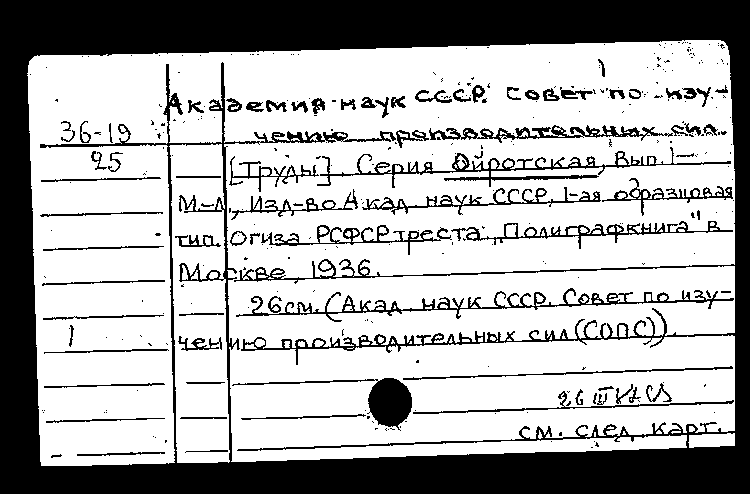 1
Академия наук СССР. Совет по изу-
36-19 чению производительных сил.
25 [Труды]. Серия Ойротская, Вып. 1-
М.-Л., Изд-во Акад. наук СССР, 1-ая образцовая
тип. Огиза РСФСР треста „Полиграфкнига" в
Москве, 1936.
26 см. (Акад. наук СССР. Совет по изу-
1 чению производительных сил (СОПС)).
26 III
см. след. карт.